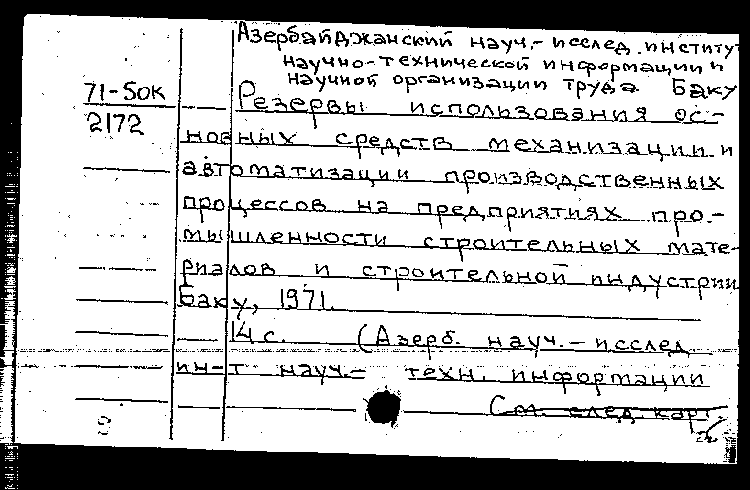 Азербайджанский науч.-исслед. институт
научно-технической информации и
научной организации труда Баку
71-5ок
2172
Резервы использования ос-
новных средств механизации и
автоматизации производственных
процессов на предприятиях про-
мышленности строительных мате-
риалов и строительной индустрии
Баку, 1971.
14 с. (Азерб. науч.-исслед
ин-т науч.- техн. информации
См. след. карт.